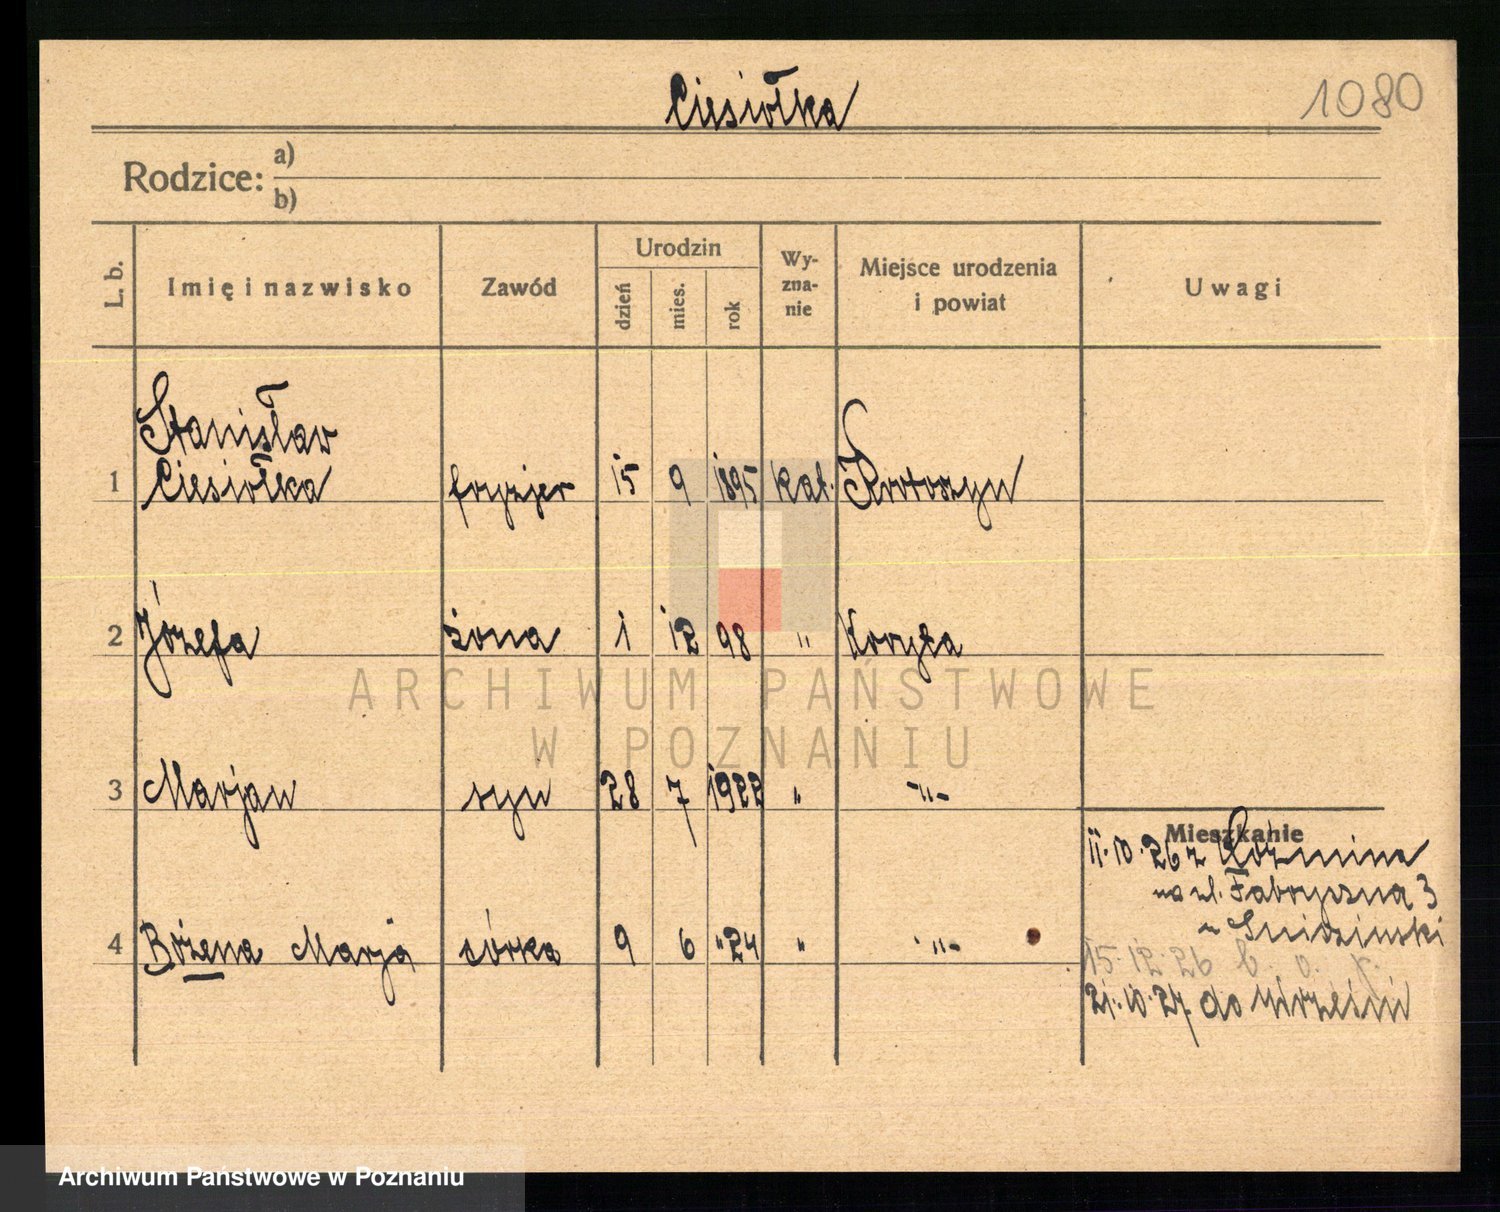 Ciesiołka
1080
Rodzice:
a)
b)
L. b.
Imię i nazwisko
Zawód
Urodzin
dzień
mies.
rok
Wy-
zna-
nie
Miejsce urodzenia
i powiat
Uwagi
Stanisław
1 Ciesiołka fryzjer 15 9 1895 kat. Krotoszyn
2 Józefa żona 1 12 98 " Koryta
ARCHIWUM PAŃSTWOWE
W POZNANIU
3 Marjan syn 28 7 1922 " -"-
Mieszkanie
11.10.26 z Koźmina
na ul. Fabryczna 3
4 Bożena Marja córka 9 6 "24 " -"-
15.12.26 b. o. p.
21.10.27. do Wrześni
Archiwum Państwowe w Poznaniu